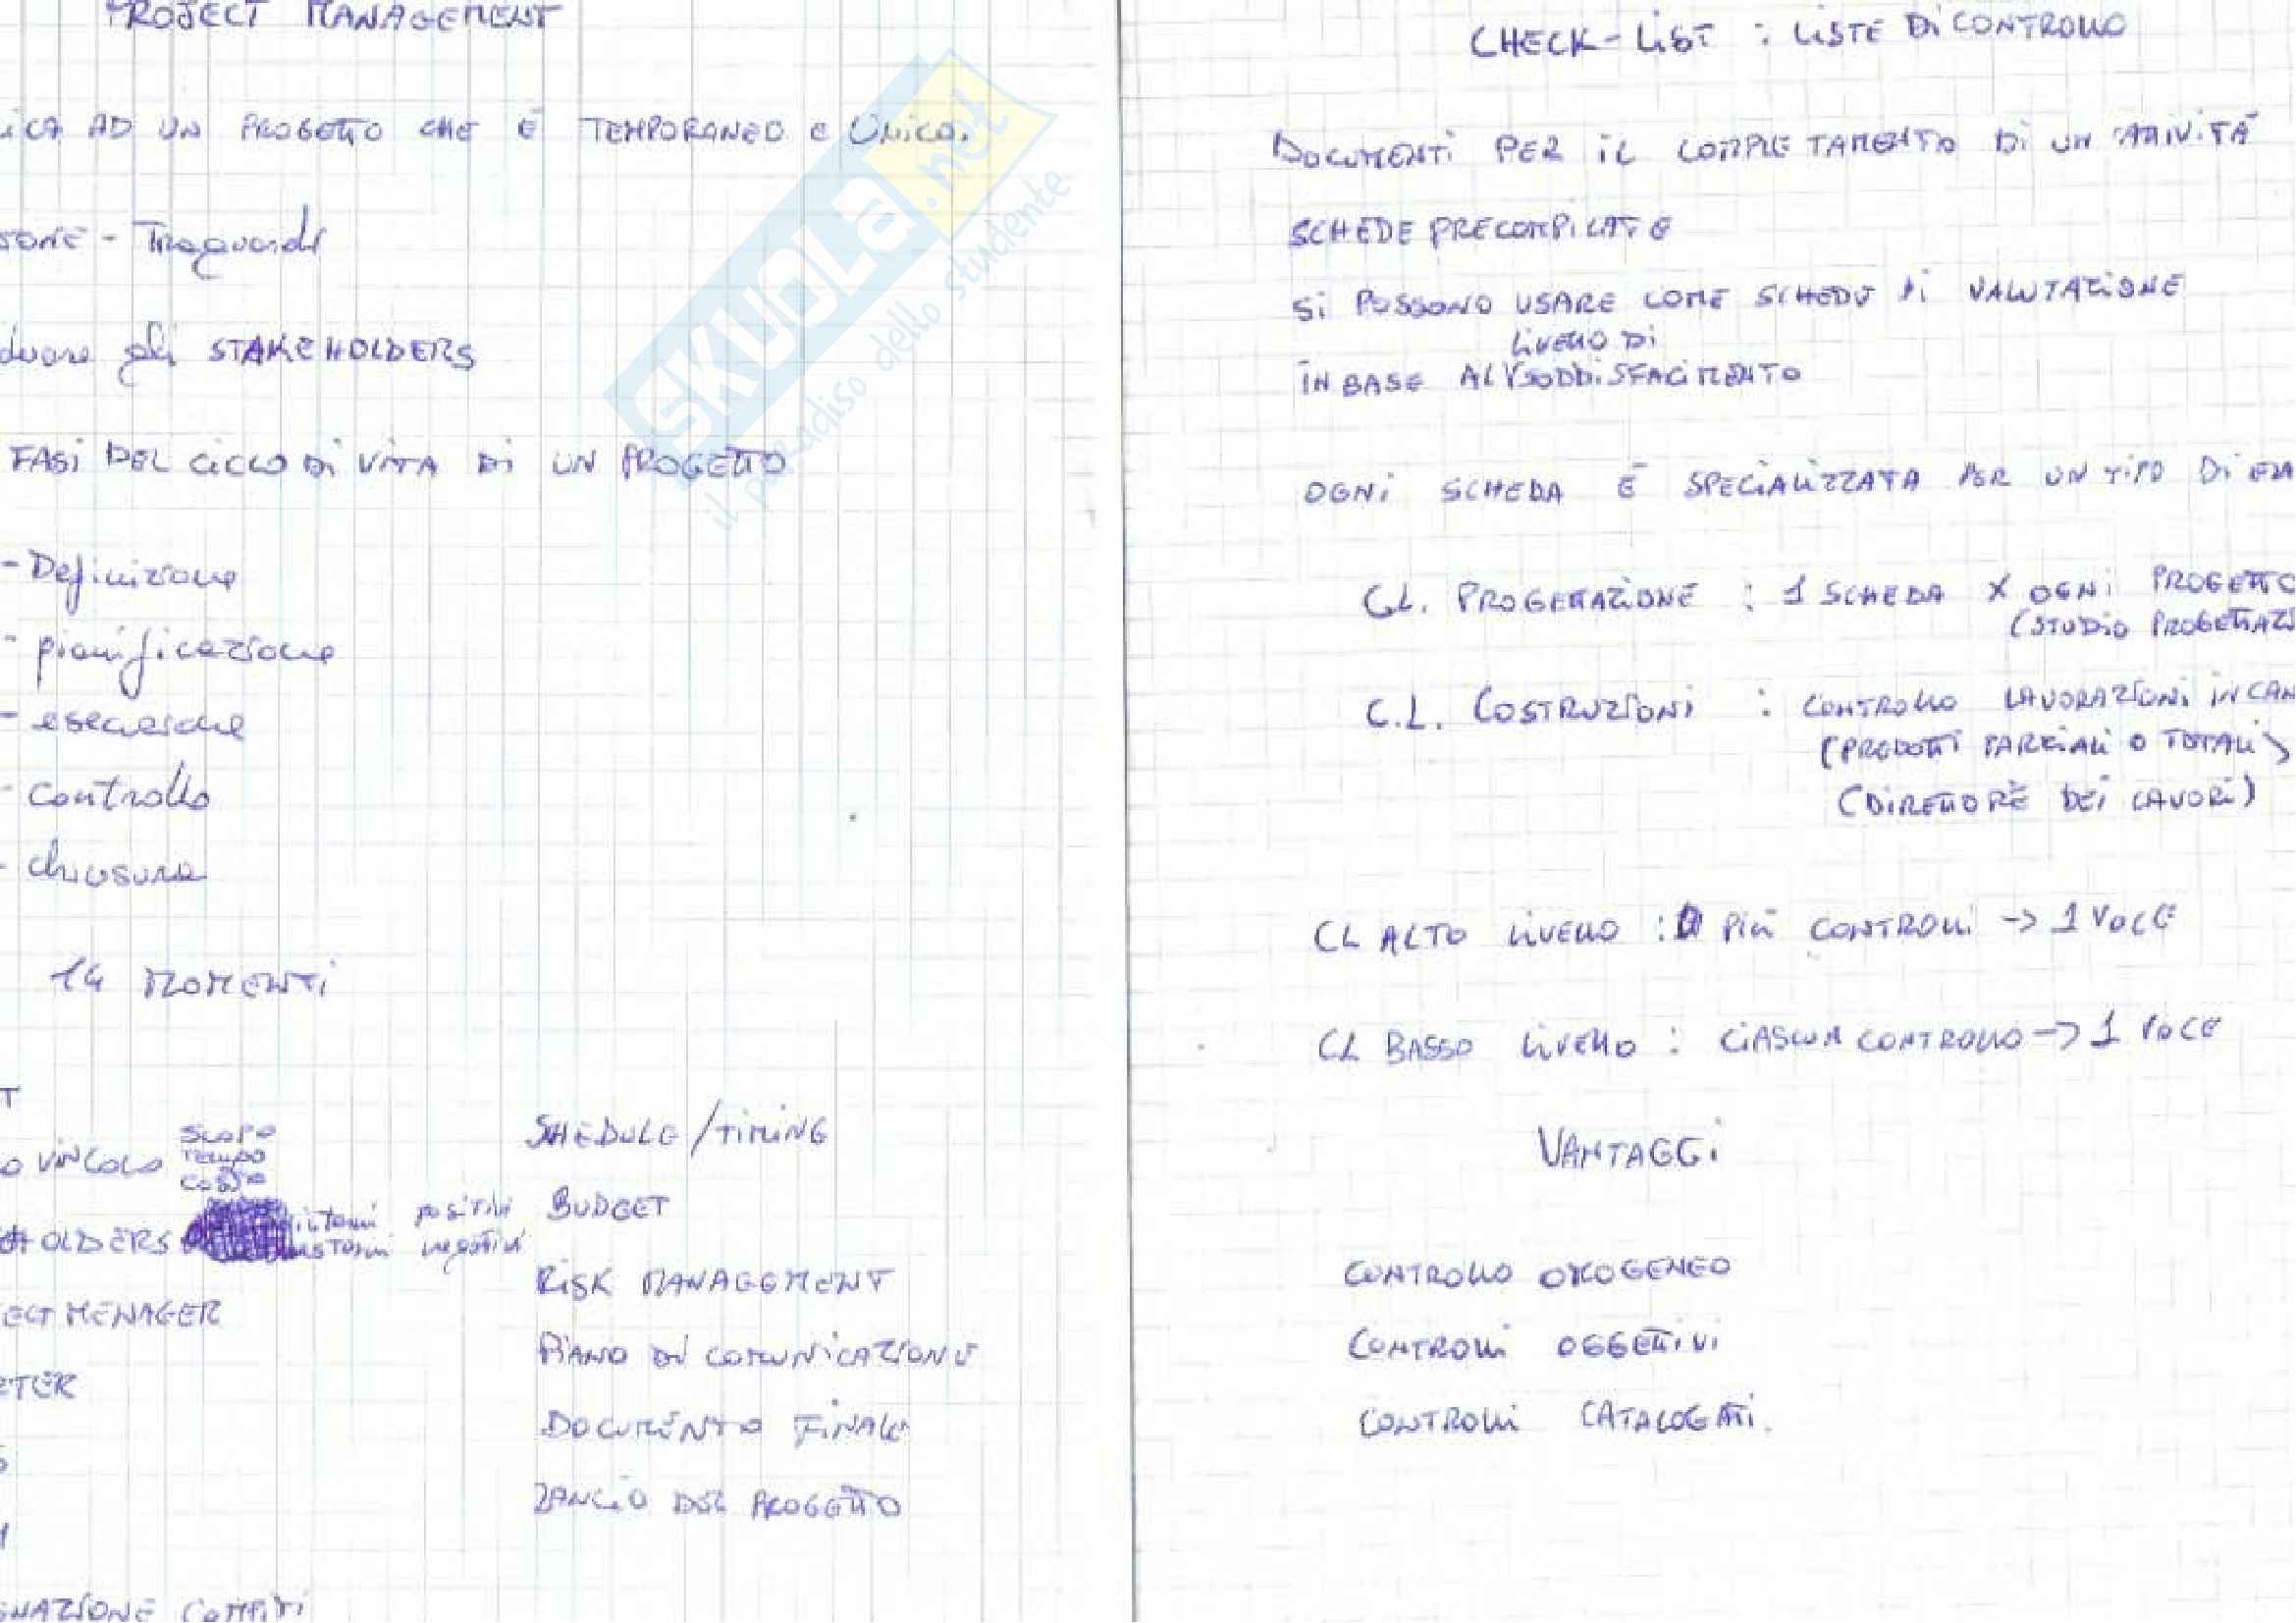 PROJECT MANAGEMENT
ICA AD UN PROGETTO CHE È TEMPORANEO E UNICO.
IONE - Traguardi
duare gli STAKEHOLDERS
FASI DEL CICLO DI VITA DI UN PROGETTO
- Definizione
- pianificazione
- esecuzione
- controllo
- chiusura
14 MOMENTI
T
O VINCOLO SCOPO
TEMPO
COSTO
HOLDERS interni positivi
esterni negativi
ECT MENAGER
RTER
GNAZIONE COMPITI
SHEDULE / TIMING
BUDGET
RISK MANAGEMENT
PIANO DI COMUNICAZIONE
DOCUMENTO FINALE
LANCIO DEL PROGETTO
SKUOLA.net
il paradiso dello studente
CHECK-LIST : LISTE DI CONTROLLO
DOCUMENTI PER IL COMPLETAMENTO DI UN'ATTIVITÀ
SCHEDE PRECOMPILATE
SI POSSONO USARE COME SCHEDE DI VALUTAZIONE
LIVELLO DI
IN BASE AL SODDISFACIMENTO
OGNI SCHEDA È SPECIALIZZATA PER UN TIPO DI
C.L. PROGETTAZIONE : 1 SCHEDA X OGNI PROGETTO
(STUDIO PROGETTAZI
C.L. COSTRUZIONI : CONTROLLO LAVORAZIONI IN CAN
(PRODOTTI PARZIALI O TOTALI)
(DIRETTORE DEI LAVORI)
CL ALTO LIVELLO : PIÙ CONTROLLI -> 1 VOCE
CL BASSO LIVELLO : CIASCUN CONTROLLO -> 1 VOCE
VANTAGGI
CONTROLLO OMOGENEO
CONTROLLI OGGETTIVI
CONTROLLI CATALOGATI.